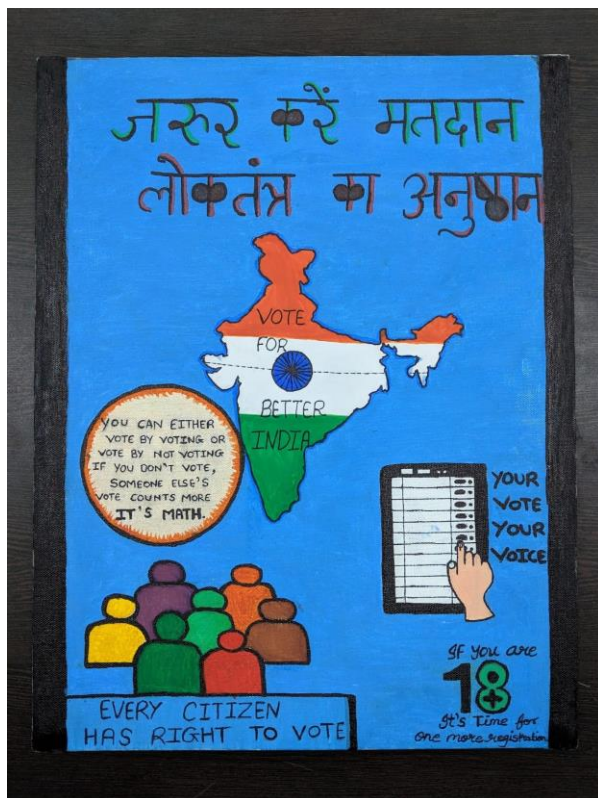 जरुर करें मतदान
लोकतंत्र का अनुष्ठान
VOTE
FOR
BETTER
INDIA
YOU CAN EITHER
VOTE BY VOTING OR
VOTE BY NOT VOTING
IF YOU DON'T VOTE,
SOMEONE ELSE'S
VOTE COUNTS MORE
IT'S MATH.
YOUR
VOTE
YOUR
VOICE
If you are
18+
It's Time for
one more registration
EVERY CITIZEN
HAS RIGHT TO VOTE